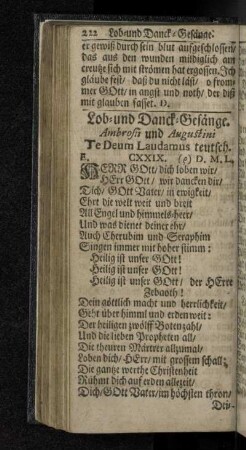 222 Lob-und Danck-Gesänge.
er gewiß durch sein blut aufgeschlossen/
das aus den wunden mildiglich am
creutze sich mit strömen hat ergossen. Ich
gläube fest/ daß du nicht läst/ o from-
mer GOtt/ in angst und noth/ der diß
mit glauben fasset. D.
Lob- und Danck-Gesänge.
Ambrosii und Augustini
Te Deum Laudamus teutsch.
F. CXXIX. (e) D. M. L.
HERR GOtt/ dich loben wir/
HErr GOtt/ wir dancken dir/
Dich/ GOtt Vater/ in ewigkeit/
Ehrt die welt weit und breit
All Engel und himmels-heer/
Und was dienet deiner ehr/
Auch Cherubim und Seraphim
Singen immer mit hoher stimm:
Heilig ist unser GOtt!
Heilig ist unser GOtt!
Heilig ist unser GOtt/ der HErre
Zebaoth!
Dein göttlich macht und herrlichkeit/
Geht über himml und erden weit:
Der heiligen zwölff Botenzahl/
Und die lieben Propheten all/
Die theuren Märtrer allzumal/
Loben dich/ HErr/ mit grossem schall:
Die gantze werthe Christenheit
Rühmt dich auf erden allezeit/
Dich/ GOtt Vater/ im höchsten thron/
Dei-